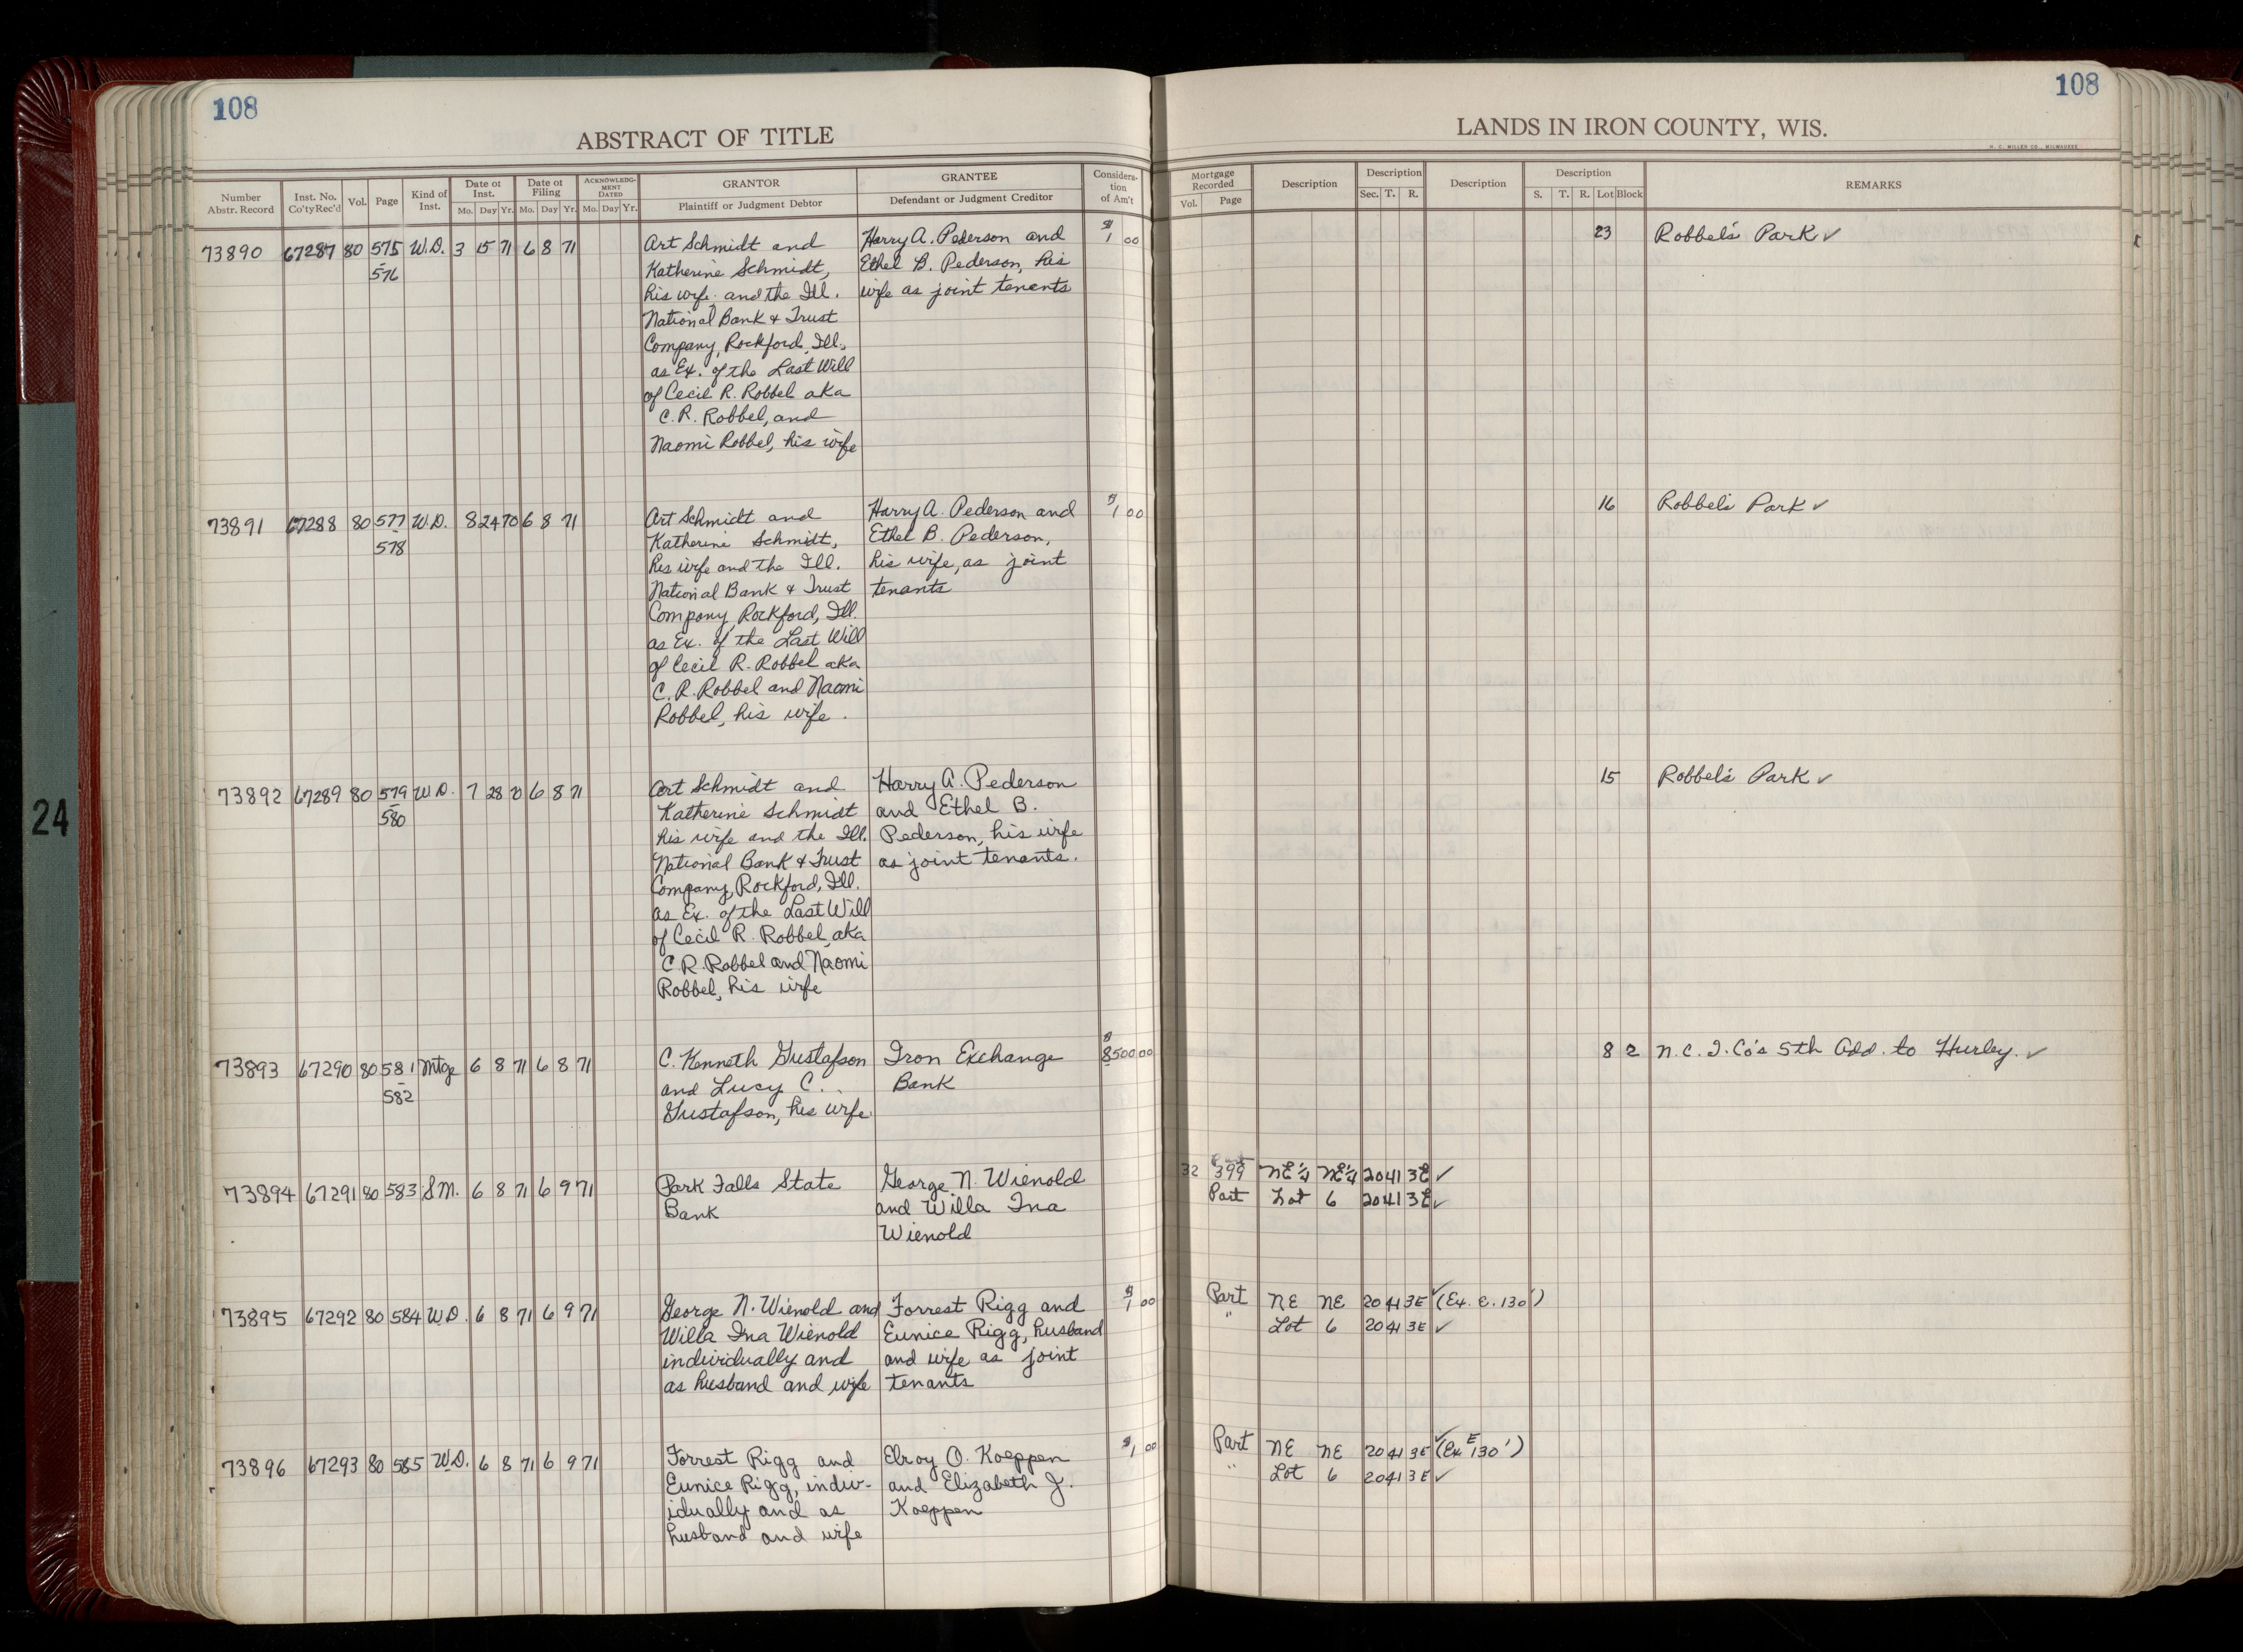 108
108
ABSTRACT OF TITLE
LANDS IN IRON COUNTY, WIS.
H. C. MILLER CO., MILWAUKEE
Number Abstr. Record
Inst. No. Co'ty Rec'd
Vol.
Page
Kind of Inst.
Date of Inst.
Mo. Day Yr.
Date of Filing
Mo. Day Yr.
ACKNOWLEDGMENT DATED
Mo. Day Yr.
GRANTOR
Plaintiff or Judgment Debtor
GRANTEE
Defendant or Judgment Creditor
Consideration of Am't
Mortgage Recorded
Vol. Page
Description
Description
Sec. T. R.
Description
Description
S. T. R. Lot Block
REMARKS
73890 67287 80 575 W.D. 3 15 71 6 8 71
- 576
Art Schmidt and
Katherine Schmidt,
his wife and the Ill.
National Bank & Trust
Company, Rockford, Ill.,
as Ex. of the Last Will
of Cecil R. Robbel aka
C. R. Robbel, and
Naomi Robbel, his wife
Harry A. Pederson and
Ethel B. Pederson, his
wife as joint tenents
$1 00
23 Robbel's Park ✓
73891 67288 80 577 W.D. 8 24 70 6 8 71
- 578
Art Schmidt and
Katherine Schmidt,
his wife and the Ill.
National Bank & Trust
Company, Rockford, Ill.
as Ex. of the Last Will
of Cecil R. Robbel aka
C. R. Robbel and Naomi
Robbel, his wife.
Harry A. Pederson and
Ethel B. Pederson,
his wife, as joint
tenants
$1 00
16 Robbel's Park ✓
73892 67289 80 579 W.D. 7 28 70 6 8 71
- 580
Art Schmidt and
Katherine Schmidt
his wife and the Ill.
National Bank & Trust
Company, Rockford, Ill.
as Ex. of the Last Will
of Cecil R. Robbel, aka
C. R. Robbel and Naomi
Robbel, his wife
Harry A. Pederson
and Ethel B.
Pederson, his wife
as joint tenants.
15 Robbel's Park ✓
73893 67290 80 581 Mtge 6 8 71 6 8 71
- 582
C. Kenneth Gustafson
and Lucy C.
Gustafson, his wife
Iron Exchange
Bank
$8500 00
8 2 N.C.I. Co's 5th Add. to Hurley. ✓
73894 67291 80 583 S.M. 6 8 71 6 9 71
Park Falls State
Bank
George N. Wienold
and Willa Ina
Wienold
32 399 NE¼ NE¼ 20 41 3E ✓
Part Lot 6 20 41 3E ✓
73895 67292 80 584 W.D. 6 8 71 6 9 71
George N. Wienold and
Willa Ina Wienold
individually and
as husband and wife
Forrest Rigg and
Eunice Rigg, husband
and wife as joint
tenants
$1 00
Part NE NE 20 41 3E ✓ (Ex. E. 130')
" Lot 6 20 41 3E ✓
73896 67293 80 585 W.D. 6 8 71 6 9 71
Forrest Rigg and
Eunice Rigg, indiv-
idually and as
husband and wife
Elroy O. Koeppen
and Elizabeth J.
Koeppen
$1 00
Part NE NE 20 41 3E ✓ (Ex. E 130')
" Lot 6 20 41 3E ✓
24